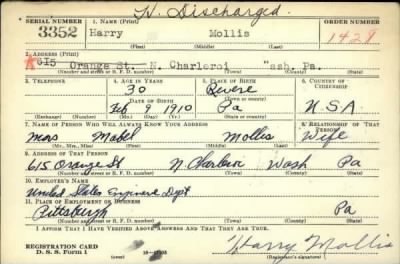 H. Discharged.
SERIAL NUMBER 1. NAME (Print) ORDER NUMBER
3352 Harry Mollis 1429
(First) (Middle) (Last)
2. ADDRESS (Print)
615 Orange St.— N. Charleroi Wash. Pa.
(Number and street or R. F. D. number) (Town) (County) (State)
3. TELEPHONE 4. AGE IN YEARS 5. PLACE OF BIRTH 6. COUNTRY OF CITIZENSHIP
30 Revere
DATE OF BIRTH (Town or county)
Feb 9 1910 Pa U.S.A
(Exchange) (Number) (Mo.) (Day) (Yr.) (State or country)
7. NAME OF PERSON WHO WILL ALWAYS KNOW YOUR ADDRESS 8. RELATIONSHIP OF THAT PERSON
Mrs Mabel Mollis Wife
(Mr., Mrs., Miss) (First) (Middle) (Last)
9. ADDRESS OF THAT PERSON
615 Orange St N Charleroi Wash Pa
(Number and street or R. F. D. number) (Town) (County) (State)
10. EMPLOYER'S NAME
United States Engineers Dept
11. PLACE OF EMPLOYMENT OR BUSINESS
Pittsburgh Pa
(Number and street or R. F. D. number) (Town) (County) (State)
I AFFIRM THAT I HAVE VERIFIED ABOVE ANSWERS AND THAT THEY ARE TRUE.
REGISTRATION CARD
D. S. S. Form 1 Harry Mollis